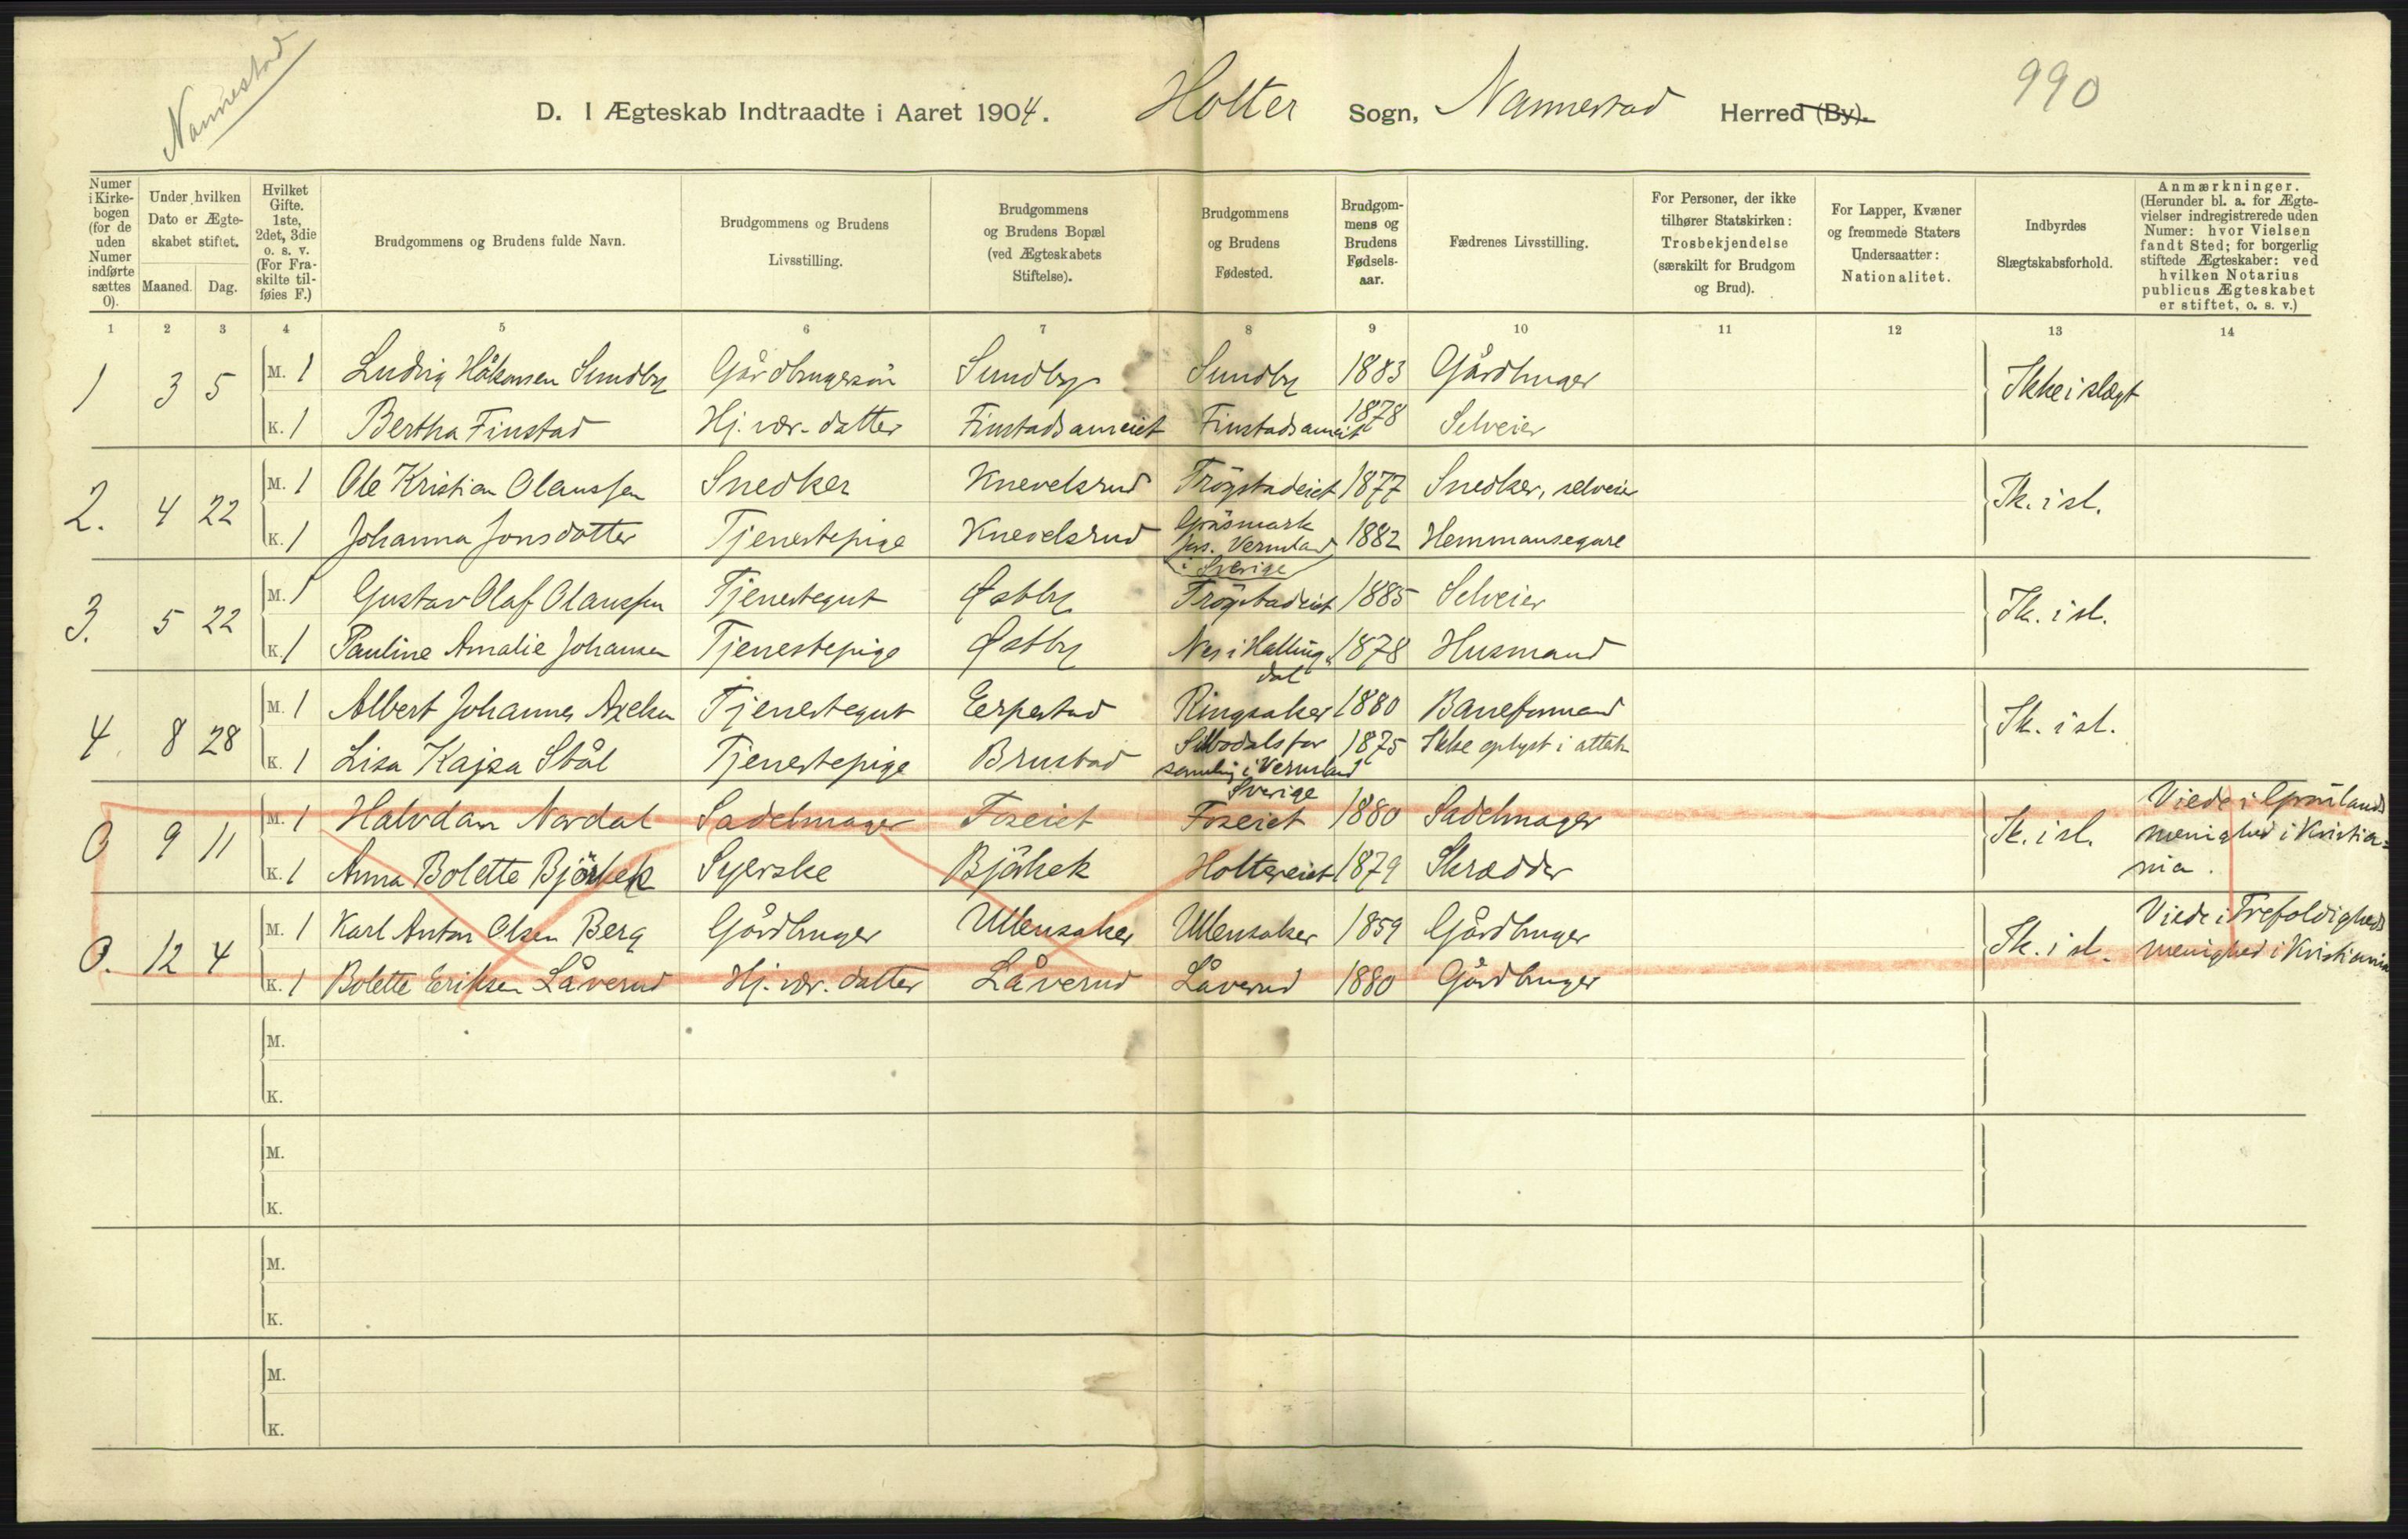 Nannestad
D. I Ægteskab Indtraadte i Aaret 1904. Holter Sogn, Nannestad Herred (By). 990
Numer i Kirkebogen (for de uden Numer indførte sættes 0). Under hvilken Dato er Ægteskabet stiftet. Maaned. Dag. Hvilket Gifte. 1ste, 2det, 3die o. s. v. (For Fraskilte tilføies F.) Brudgommens og Brudens fulde Navn. Brudgommens og Brudens Livsstilling. Brudgommens og Brudens Bopæl (ved Ægteskabets Stiftelse). Brudgommens og Brudens Fødested. Brudgommens og Brudens Fødselsaar. Fædrenes Livsstilling. For Personer, der ikke tilhører Statskirken: Trosbekjendelse (særskilt for Brudgom og Brud). For Lapper, Kvæner og fremmede Staters Undersaatter: Nationalitet. Indbyrdes Slægtskabsforhold. Anmærkninger. (Herunder bl. a. for Ægtevielser indregistrerede uden Numer: hvor Vielsen fandt Sted; for borgerlig stiftede Ægteskaber: ved hvilken Notarius publicus Ægteskabet er stiftet, o. s. v.)
1 2 3 4 5 6 7 8 9 10 11 12 13 14
1 3 5 M. 1 Ludvig Håkonsen Sundby Gårdbrugersön Sundby Sundby 1883 Gårdbruger Ikke i slægt
K. 1 Bertha Finstad Hj. vær. datter Finstadsameiet Finstadsameiet 1878 Selveier
2. 4 22 M. 1 Ole Kristian Olaussen Snedker Knevelsrud Trögstadeiet 1877 Snedker, selveier Ik. i sl.
K. 1 Johanna Jonsdotter Tjenestepige Knevelsrud Gräsmark Vermland i Sverige 1882 Hemmansegare
3. 5 22 M. 1 Gustav Olaf Olaussen Tjenestegut Østby Trögstadeiet 1885 Selveier Ik. i sl.
K. 1 Pauline Amalie Johansen Tjenestepige Østby Nes i Hallingdal 1878 Husmand
4. 8 28 M. 1 Albert Johannes Axelsen Tjenestegut Eerpestad Ringsaker 1880 Baneformand Ik. i sl.
K. 1 Lisa Kajsa Stål Tjenestepige Brustad Silbodals församling i Vermland Sverige 1875 Ikke oplyst i attest
0 9 11 M. 1 Halvdan Nordal Sadelmager Foseiet Foseiet 1880 Sadelmager Ik. i sl. Viede i Grönlands menighed i Kristiania.
K. 1 Anna Bolette Björbek Syerske Björbek Holtereiet 1879 Skrædder
0. 12 4 M. 1 Karl Anton Olsen Berg Gårdbruger Ullensaker Ullensaker 1859 Gårdbruger Ik. i sl. Viede i Trefoldigheds menighed i Kristiania
K. 1 Bolette Eriksen Låverud Hj. vær. datter Låverud Låverud 1880 Gårdbruger
M.
K.
M.
K.
M.
K.
M.
K.